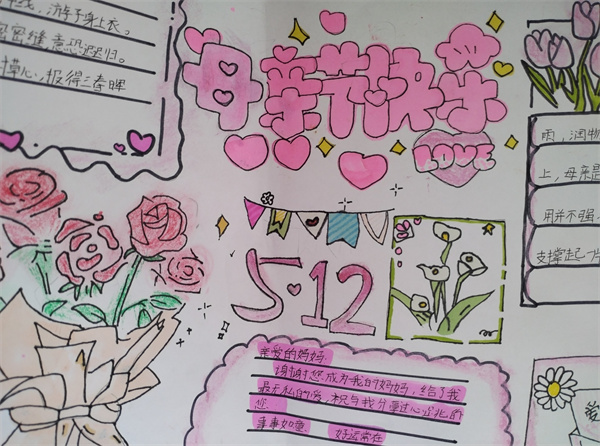 线，游子身上衣。
密密缝，意恐迟迟归。
草心，报得三春晖
母亲节快乐
LOVE
雨，润物
上，母亲是
用并不强
支撑起一片
5·12
亲爱的妈妈：
谢谢您成为我的妈妈，给了我
最无私的爱，祝与我分享过心跳的
您
事事如意 好运常在